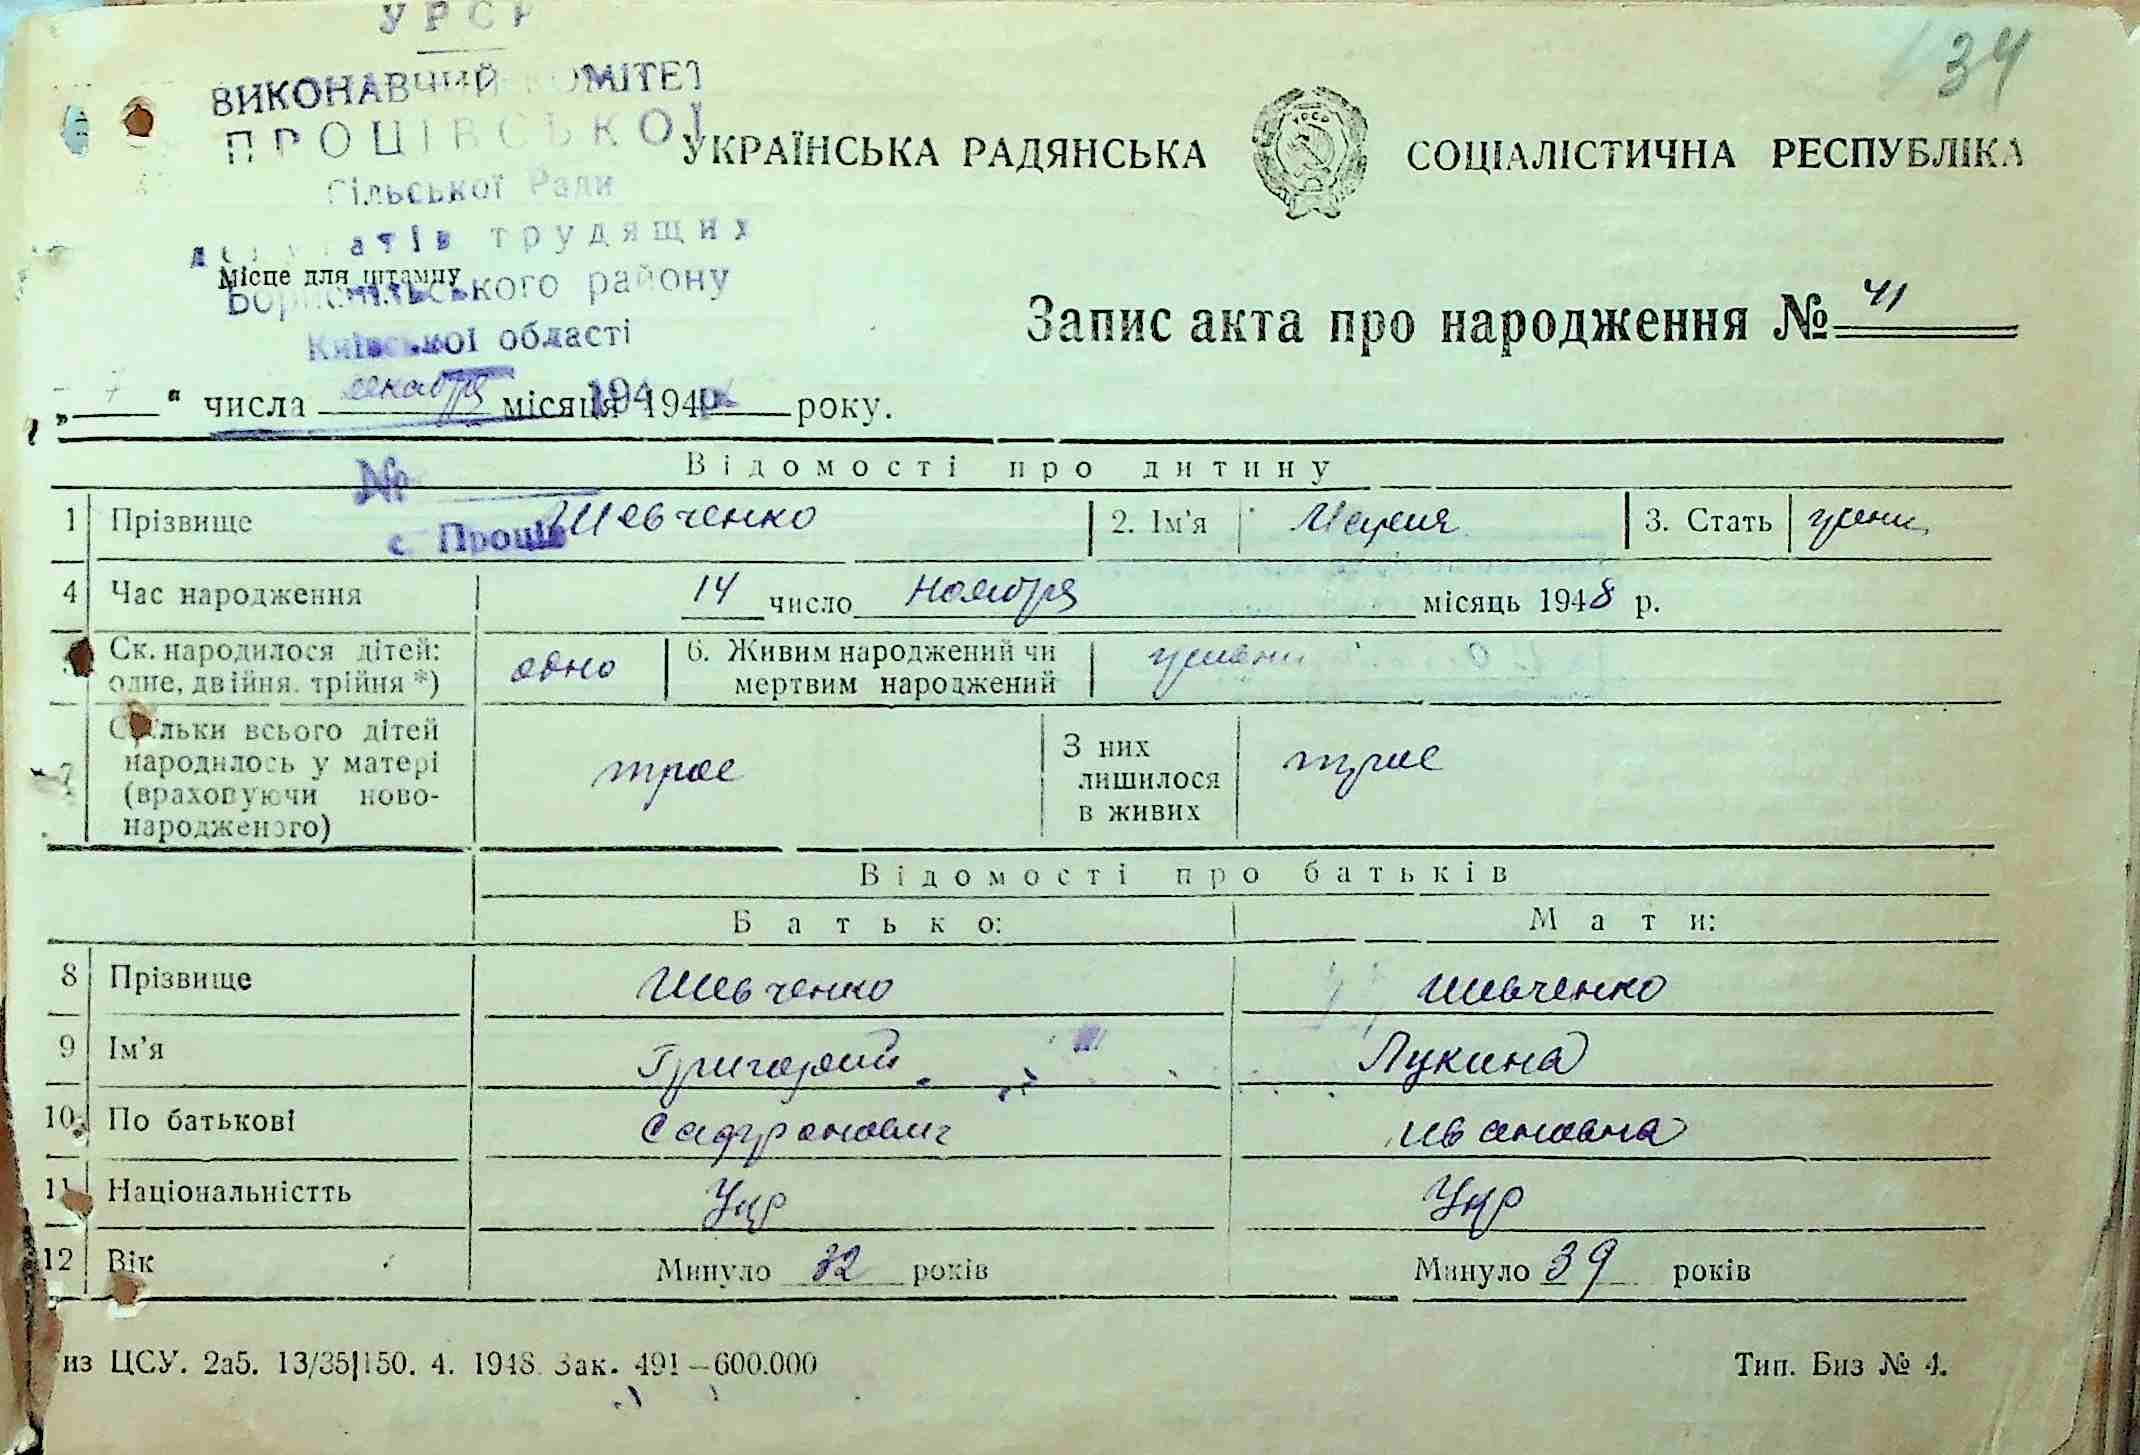 УРСР
34
ВИКОНАВЧИЙ КОМІТЕТ
ПРОЦІВСЬКОЇ
УКРАЇНСЬКА РАДЯНСЬКА СОЦІАЛІСТИЧНА РЕСПУБЛІКА
УРСР
Сільської Ради
депутатів трудящих
Місце для штампу
Бориспільського району
Київської області
Запис акта про народження № 41
„ 7 “ числа декабря місяця 194 194 року.
Відомості про дитину
№
1 Прізвище Шевченко 2. Ім'я Мария 3. Стать женс
с Проців
4 Час народження 14 число ноября місяць 1948 р.
5 Ск. народилося дітей: одне, двійня, трійня *) одно 6. Живим народжений чи мертвим народжений
7 Скільки всього дітей народилось у матері (враховуючи ново-народженого) трое З них лишилося в живих трое
Відомості про батьків
Батько: Мати:
8 Прізвище Шевченко Шевченко
9 Ім'я Григорий Лукина
10 По батькові Сафронович Ивановна
11 Національністть Укр Укр
12 Вік Минуло 32 років Минуло 39 років
из ЦСУ. 2а5. 13/35|150. 4. 1948 Зак. 491—600.000 Тип. Биз № 4.